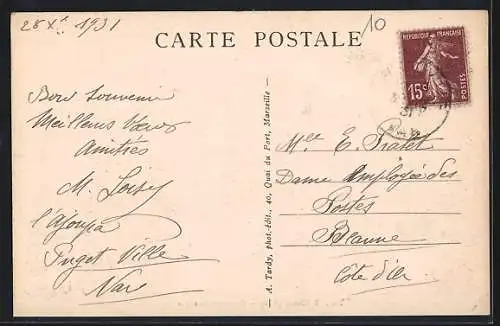 28 Xre 1931
10
CARTE POSTALE
REPUBLIQUE FRANÇAISE
15c
POSTES
Bon Souvenir
Meilleurs Vœux
Amitiés
M.
Puget Ville
Var
A. Tardy, phot.-édit., 40, Quai du Port, Marseille —
Mlle E.
Dame Employée des
Postes
Beaune
Côte d'Or